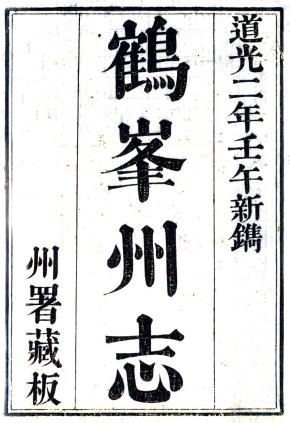 道光二年壬午新鐫
鶴峯州志
州署藏板